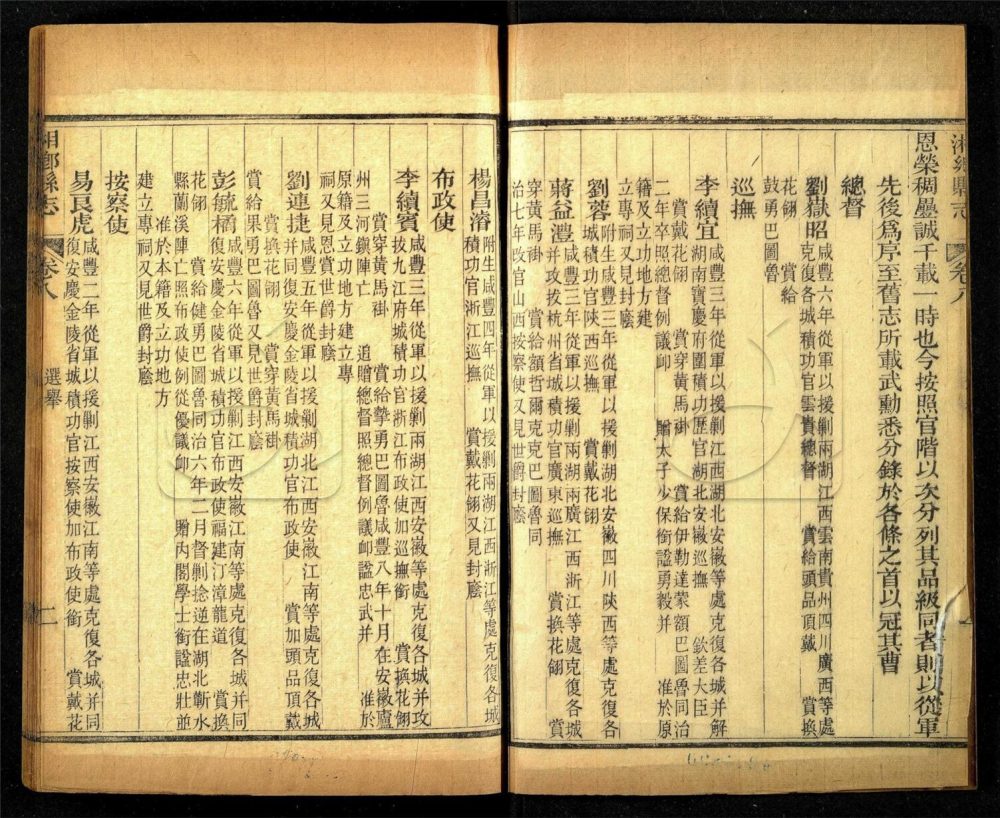 湘鄉縣志 卷八
恩榮稠疊誠千載一時也今按照官階以次分列其品級同者則以從軍
先後爲序至舊志所載武勳悉分錄於各條之首以冠其曹
總督
劉嶽昭
咸豐六年從軍以援剿兩湖江西雲南貴州四川廣西等處
克復各城積功官雲貴總督 賞給頭品頂戴 賞換
花翎 賞給
鼓勇巴圖魯
巡撫
李續宜
咸豐三年從軍以援剿江西湖北安徽等處克復各城并解
湖南寶慶府圍積功歷官湖北安徽巡撫 欽差大臣
賞戴花翎 賞穿黃馬褂 賞給伊勒達蒙額巴圖魯同治
二年卒照總督例議卹 贈太子少保銜諡勇毅并 准於原
籍及立功地方建
立專祠又見封廕
劉蓉
附生咸豐三年從軍以援剿湖北安徽四川陝西等處克復各
城積功官陝西巡撫 賞戴花翎
蔣益澧
咸豐三年從軍以援剿兩湖兩廣江西浙江等處克復各城
并攻拔杭州省城積功官廣東巡撫 賞換花翎 賞
穿黃馬褂 賞給額哲爾克巴圖魯同
治七年改官山西按察使又見世爵封廕
楊昌濬
附生咸豐四年從軍以援剿兩湖江西浙江等處克復各城
積功官浙江巡撫 賞戴花翎又見封廕
布政使
李續賓
咸豐三年從軍以援剿兩湖江西安徽等處克復各城并攻
拔九江府城積功官浙江布政使加巡撫銜 賞換花翎
賞穿黃馬褂 賞給摯勇巴圖魯咸豐八年十月在安徽廬
州三河鎮陣亡 追贈總督照總督例議卹諡忠武并 准於
原籍及立功地方建立專
祠又見恩賞世爵封廕
劉連捷
咸豐五年從軍以援剿湖北江西安徽江南等處克復各城
并同復安慶金陵省城積功官布政使 賞加頭品頂戴
賞換花翎 賞穿黃馬褂
賞給果勇巴圖魯又見世爵封廕
彭毓橘
咸豐六年從軍以援剿江西安徽江南等處克復各城并同
復安慶金陵省城積功官布政使福建汀漳龍道 賞換
花翎 賞給健勇巴圖魯同治六年二月督剿捻逆在湖北蘄水
縣蘭溪陣亡照布政使例從優議卹 贈內閣學士銜諡忠壯並
准於本籍及立功地方
建立專祠又見世爵封廕
按察使
易良虎
咸豐二年從軍以援剿江西安徽江南等處克復各城并同
復安慶金陵省城積功官按察使加布政使銜 賞戴花
湘鄉縣志 卷八 選舉 二